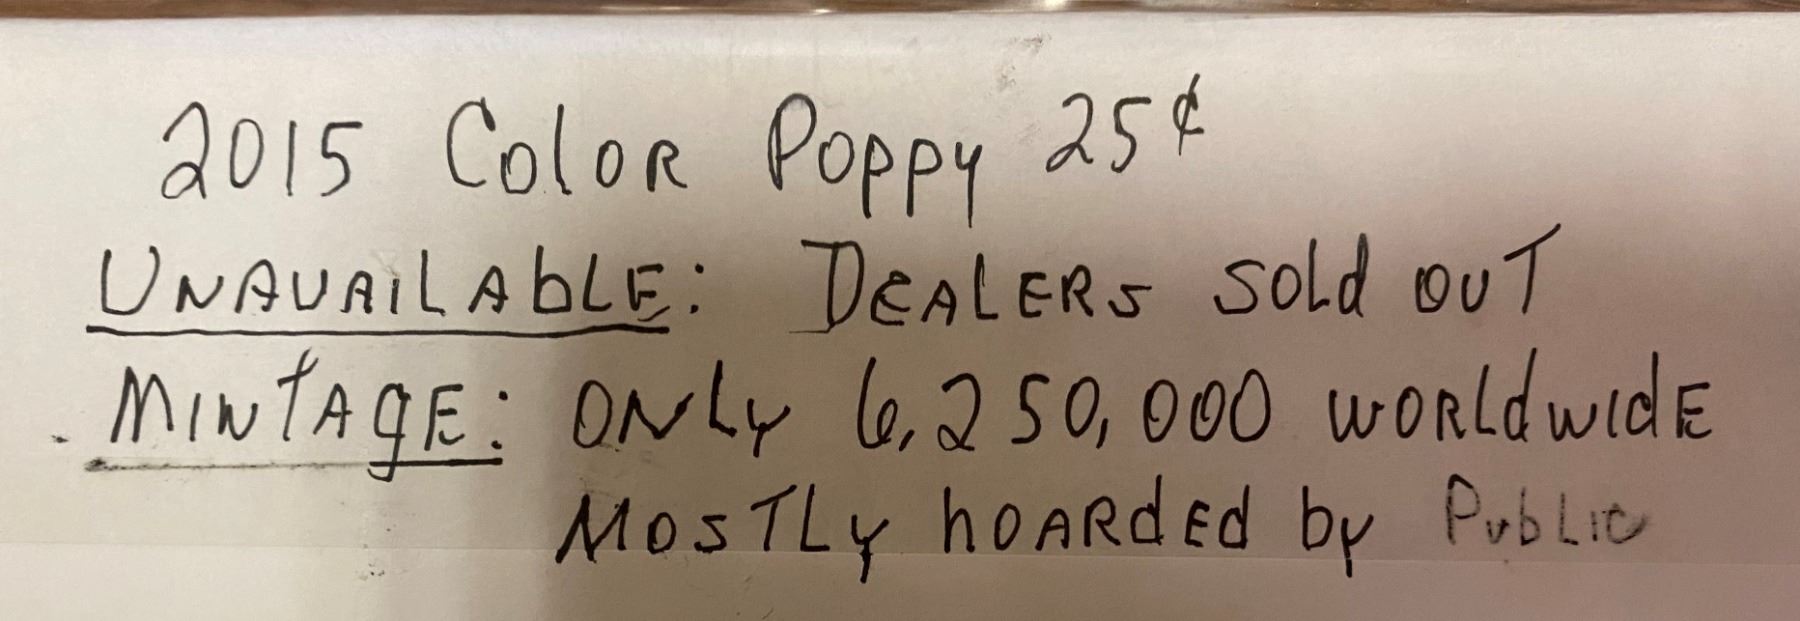 2015 Color Poppy 25¢
UNAVAILABLE: DEALERS SOLD OUT
MINTAGE: ONLY 6,250,000 WORLDWIDE
MOSTLY HOARDED by PUBLIC